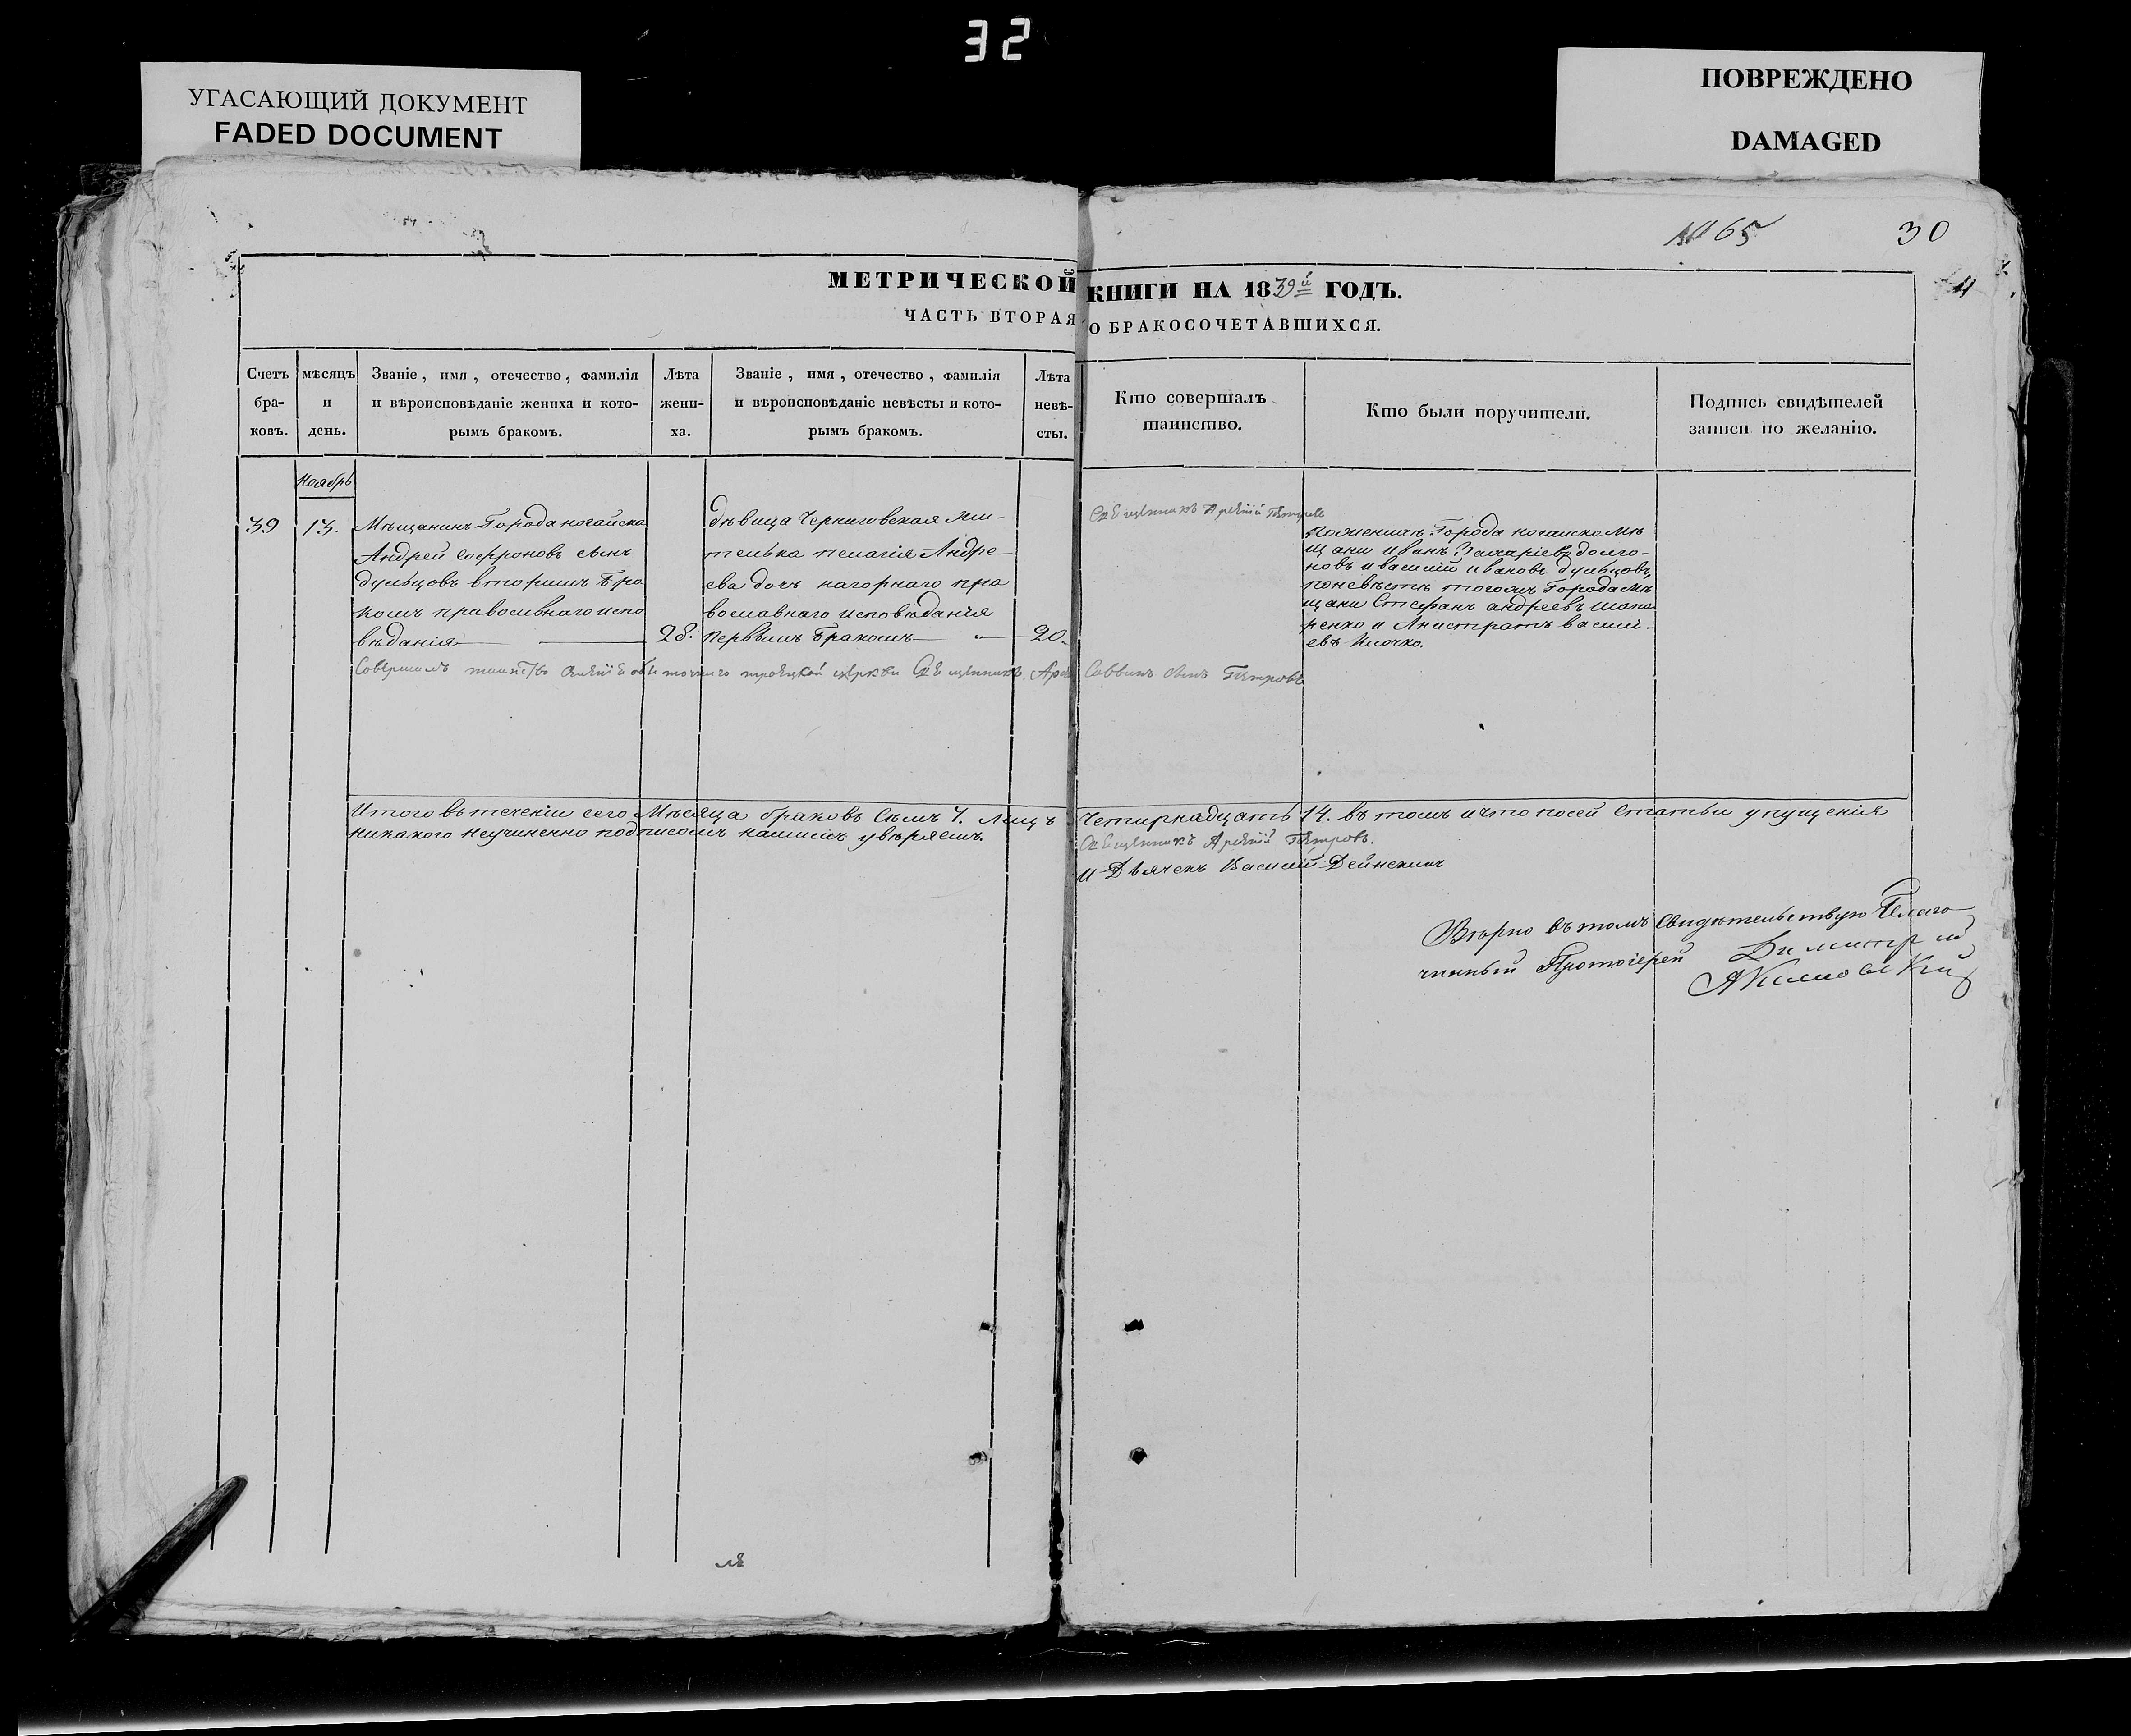 32
УГАСАЮЩИЙ ДОКУМЕНТ
FADED DOCUMENT
ПОВРЕЖДЕНО
DAMAGED
№ 65
30
МЕТРИЧЕСКОЙ КНИГИ НА 1839й ГОДЪ.
ЧАСТЬ ВТОРАЯ О БРАКОСОЧЕТАВШИХСЯ.
Счетъ
бра-
ковъ.
мѣсяцъ
и
день.
Званіе, имя, отечество, фамилія
и вѣроисповѣданіе жениха и кото-
рымъ бракомъ.
Лѣта
жени-
ха.
Званіе, имя, отечество, фамилія
и вѣроисповѣданіе невѣсты и кото-
рымъ бракомъ.
Лѣта
невѣ-
сты.
Кто совершалъ
таинство.
Кто были поручители.
Подпись свидѣтелей
записи по желанію.
Ноябрь
39
13.
Мѣщанинъ Города ногайска
Андрей софроновъ сынъ
дульцовъ вторимъ бра
комъ православнаго испо
вѣданія
28.
дѣвица Черниговская жи-
телька пелагія Андре-
ева дочь нагорнаго пра
вославнаго исповѣданія
первымъ бракомъ
20.
Священникъ Арсеній Петровъ
Поженихѣ Города ногайска мѣ
щани иванъ Захаріевъ долго-
новъ и василій ивановъ дульцовъ,
поневѣстѣ тогожъ Города мѣ
щани Стефанъ андреевъ шапа
ренко и Анистратъ васили-
евъ Клочко.
Совершалъ таинство церкви Священникъ Саввинъ сынъ Петровъ
Итого въ теченіи сего Мѣсяца браковъ Семъ 7. лицъ Четирнадцать 14. въ томъ ичто посей статьи упущенія
никакого неучиненно подписомъ нашимъ увѣряемъ.
Священникъ Арсеній Петровъ.
И Дьячекъ Василій Дейнекинъ
Вѣрно въ томъ свидѣтельствую Благо
чинный Протоіерей Димитрій